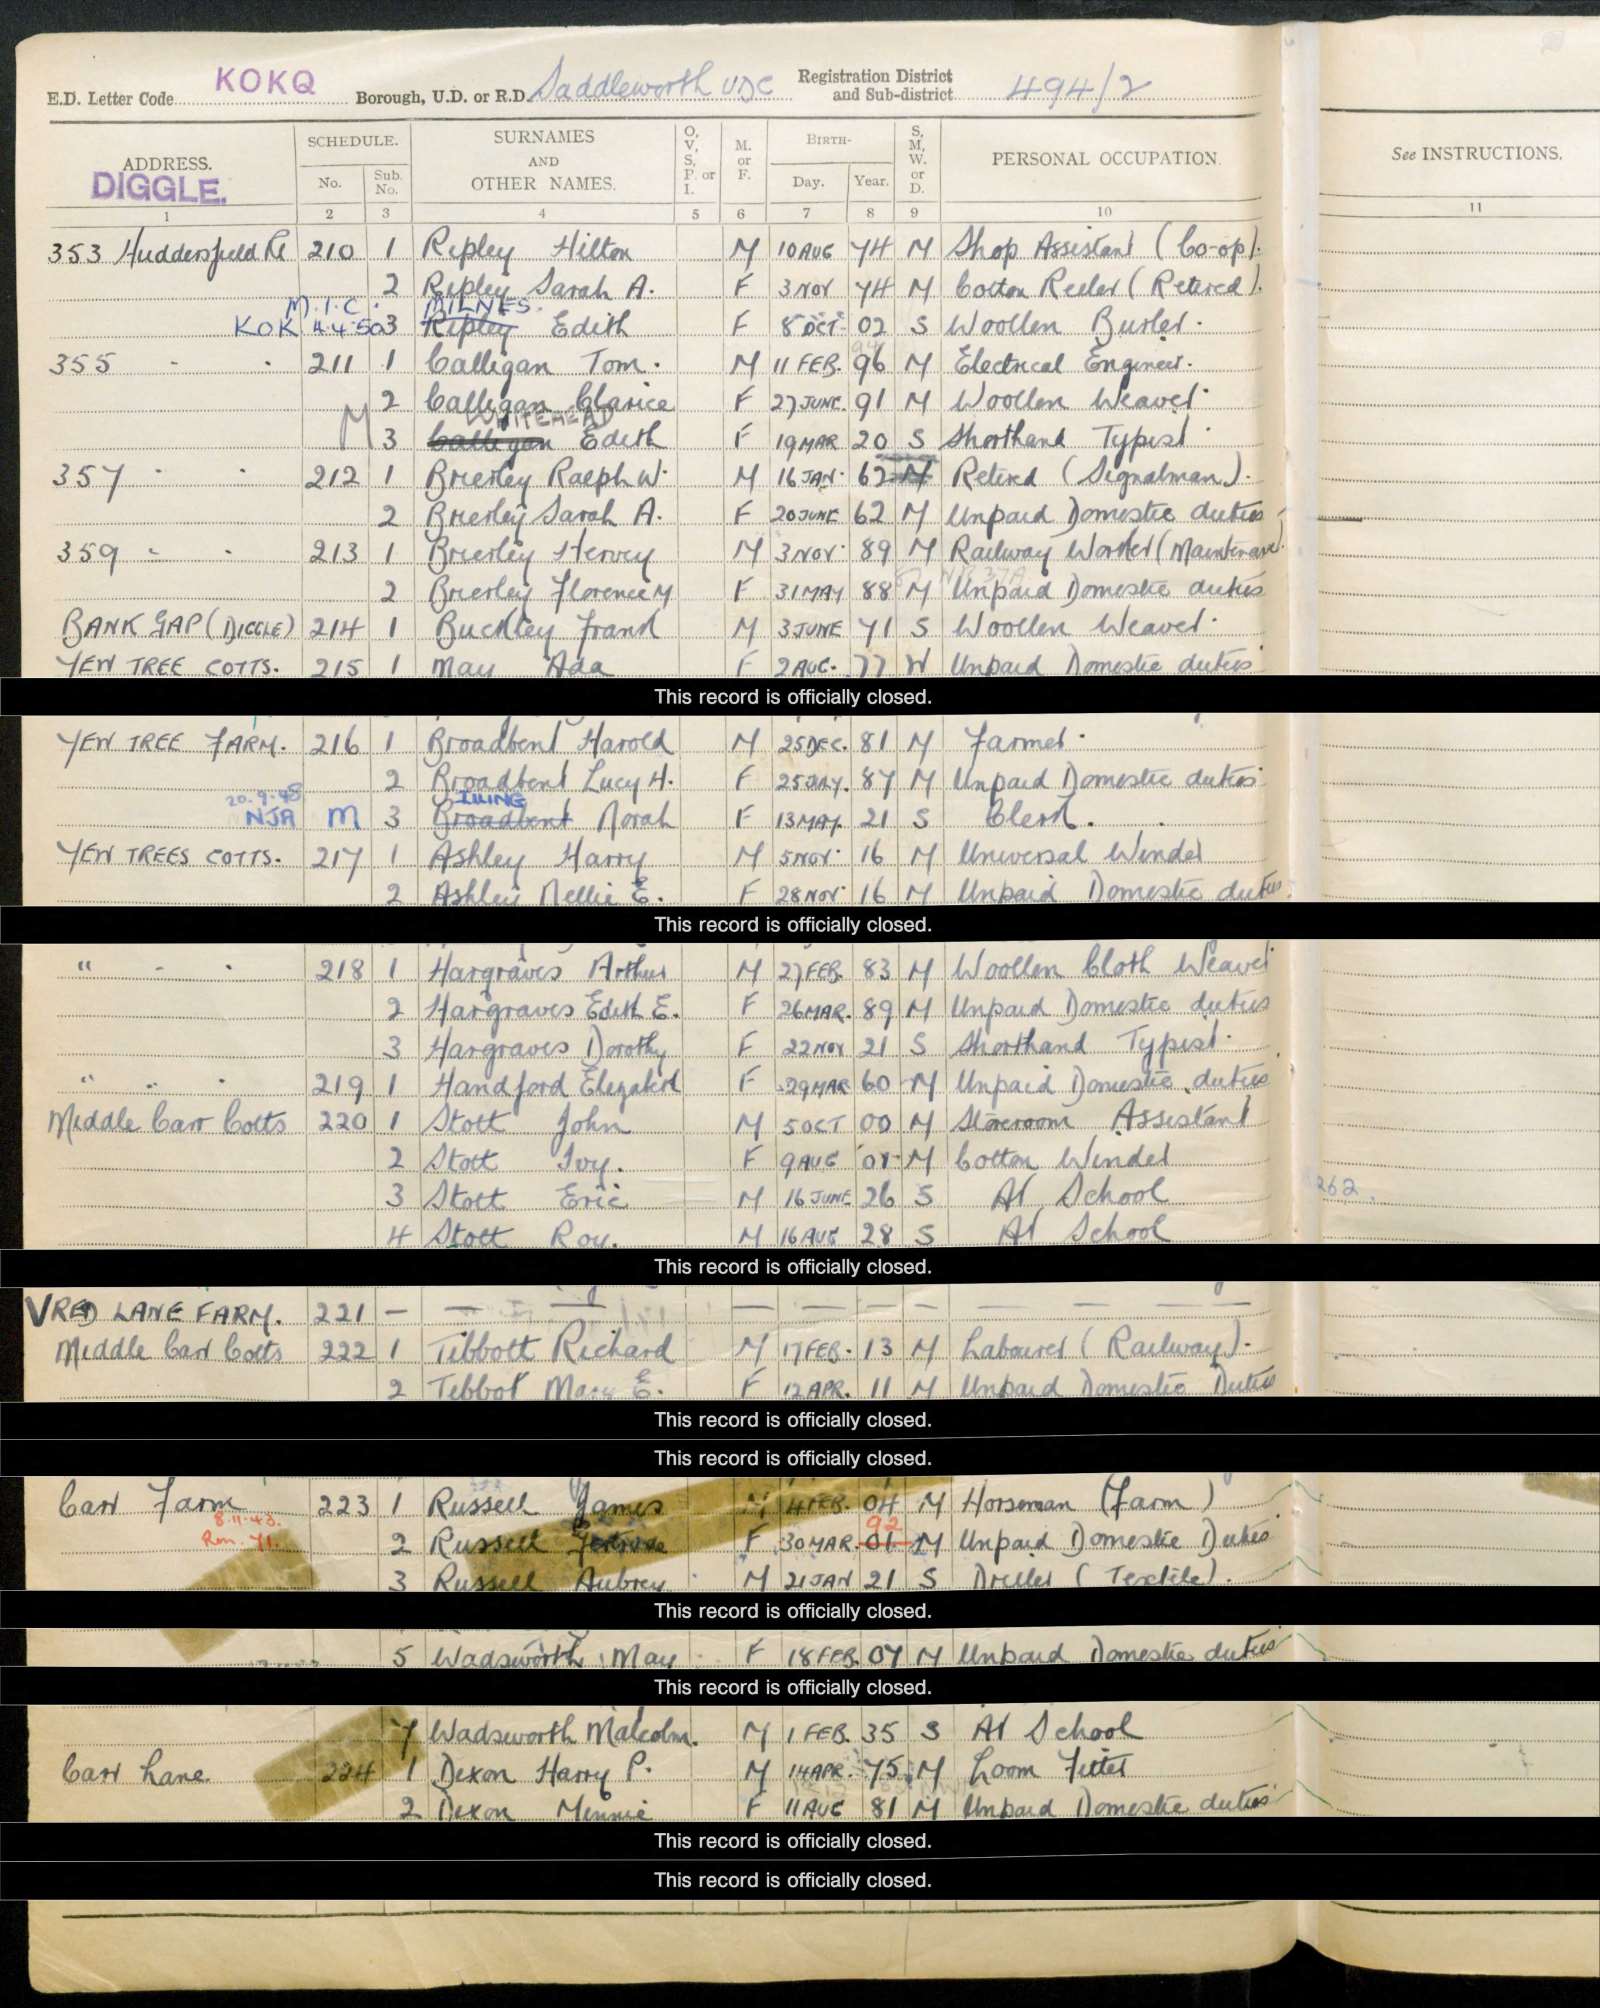 KOKQ
E.D. Letter Code Borough, U.D. or R.D. Saddleworth UDC Registration District and Sub-district 494/2
ADDRESS. SCHEDULE. No. Sub. No. SURNAMES AND OTHER NAMES. O, V, S, P. or I. M. or F. BIRTH- Day. Year. S, M, W. or D. PERSONAL OCCUPATION. See INSTRUCTIONS.
DIGGLE.
1 2 3 4 5 6 7 8 9 10 11
353 Huddersfield Rd 210 1 Ripley Hilton M 10 AUG 74 M Shop Assistant (Co-op).
2 Ripley Sarah A. F 3 NOV 74 M Cotton Reeler (Retired).
M.I.C. MILNES.
KOK 4.4.50 3 Ripley Edith F 8 OCT 02 S Woollen Burler.
355 " " 211 1 Calligan Tom. M 11 FEB. 96 M Electrical Engineer.
2 Calligan Clarice F 27 JUNE. 91 M Woollen Weaver
WHITEHEAD
M 3 Calligan Edith F 19 MAR 20 S Shorthand Typist
357 " " 212 1 Brierley Ralph W. M 16 JAN. 62 M Retired (Signalman).
2 Brierley Sarah A. F 20 JUNE 62 M Unpaid Domestic duties
359 " " 213 1 Brierley Hervey M 3 NOV. 89 M Railway Worker (Maintenance)
2 Brierley Florence M F 31 MAY 88 M Unpaid Domestic duties
BANK GAP (DIGGLE) 214 1 Buckley Frank M 3 JUNE 71 S Woollen Weaver
YEW TREE COTTS. 215 1 May Ada F 2 AUG. 77 W Unpaid Domestic duties
This record is officially closed.
YEW TREE FARM. 216 1 Broadbent Harold M 25 DEC. 81 M Farmer.
2 Broadbent Lucy H. F 25 JAY. 87 M Unpaid Domestic duties
20.9.48
NJA M 3 Broadbent Norah F 13 MAY. 21 S Clerk.
YEW TREES COTTS. 217 1 Ashley Harry M 5 NOV. 16 M Universal Winder
2 Ashley Nellie E. F 28 NOV. 16 M Unpaid Domestic duties.
This record is officially closed.
" " " 218 1 Hargraves Arthur M 27 FEB. 83 M Woollen Cloth Weaver
2 Hargraves Edith E. F 26 MAR. 89 M Unpaid Domestic duties
3 Hargraves Dorothy F 22 NOV 21 S Shorthand Typist.
" " " 219 1 Handford Elizabeth F 29 MAR 60 M Unpaid Domestic duties
Middle Carr Cotts 220 1 Stott John M 5 OCT 00 M Storeroom Assistant
2 Stott Ivy. F 9 AUG 01 M Cotton Winder
3 Stott Eric M 16 JUNE 26 S At School 262.
4 Stott Roy. M 16 AUG 28 S At School
This record is officially closed.
V RED LANE FARM. 221 — — — — — — — — —
Middle Carr Cotts 222 1 Tibbott Richard M 17 FEB. 13 M Labourer (Railway).
2 Tibbot Mary E. F 12 APR. 11 M Unpaid Domestic Duties
This record is officially closed.
This record is officially closed.
Carr Farm 223 1 Russell James M 4 FEB. 04 M Horseman (Farm)
8.11.43. 92
Rm. 71. 2 Russell Gertrude F 30 MAR. 01 M Unpaid Domestic Duties
3 Russell Aubrey M 21 JAN 21 S Driller (Textile).
This record is officially closed.
5 Wadsworth May F 18 FEB. 07 M Unpaid Domestic duties
This record is officially closed.
7 Wadsworth Malcolm. M 1 FEB. 35 S At School
Carr Lane 224 1 Dixon Harry P. M 14 APR. 75 M Loom Fitter
2 Dixon Minnie F 11 AUG 81 M Unpaid Domestic duties
This record is officially closed.
This record is officially closed.